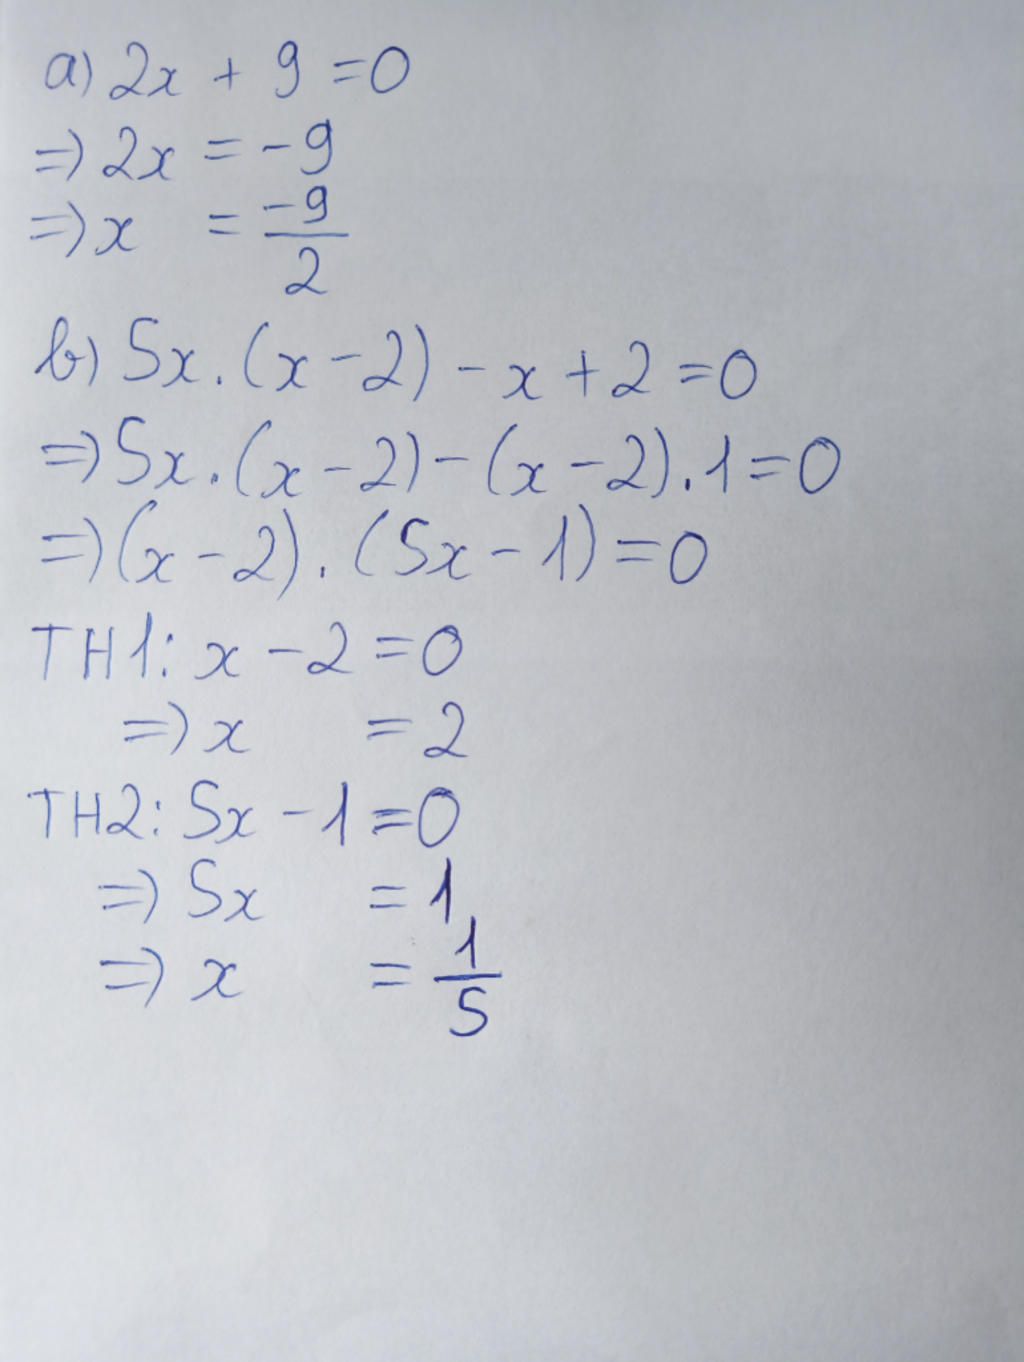 a) 2x + 9 = 0
=> 2x = -9
=> x = -9/2
b) 5x.(x - 2) - x + 2 = 0
=> 5x.(x - 2) - (x - 2).1 = 0
=> (x - 2).(5x - 1) = 0
TH1: x - 2 = 0
=> x = 2
TH2: 5x - 1 = 0
=> 5x = 1
=> x = 1/5